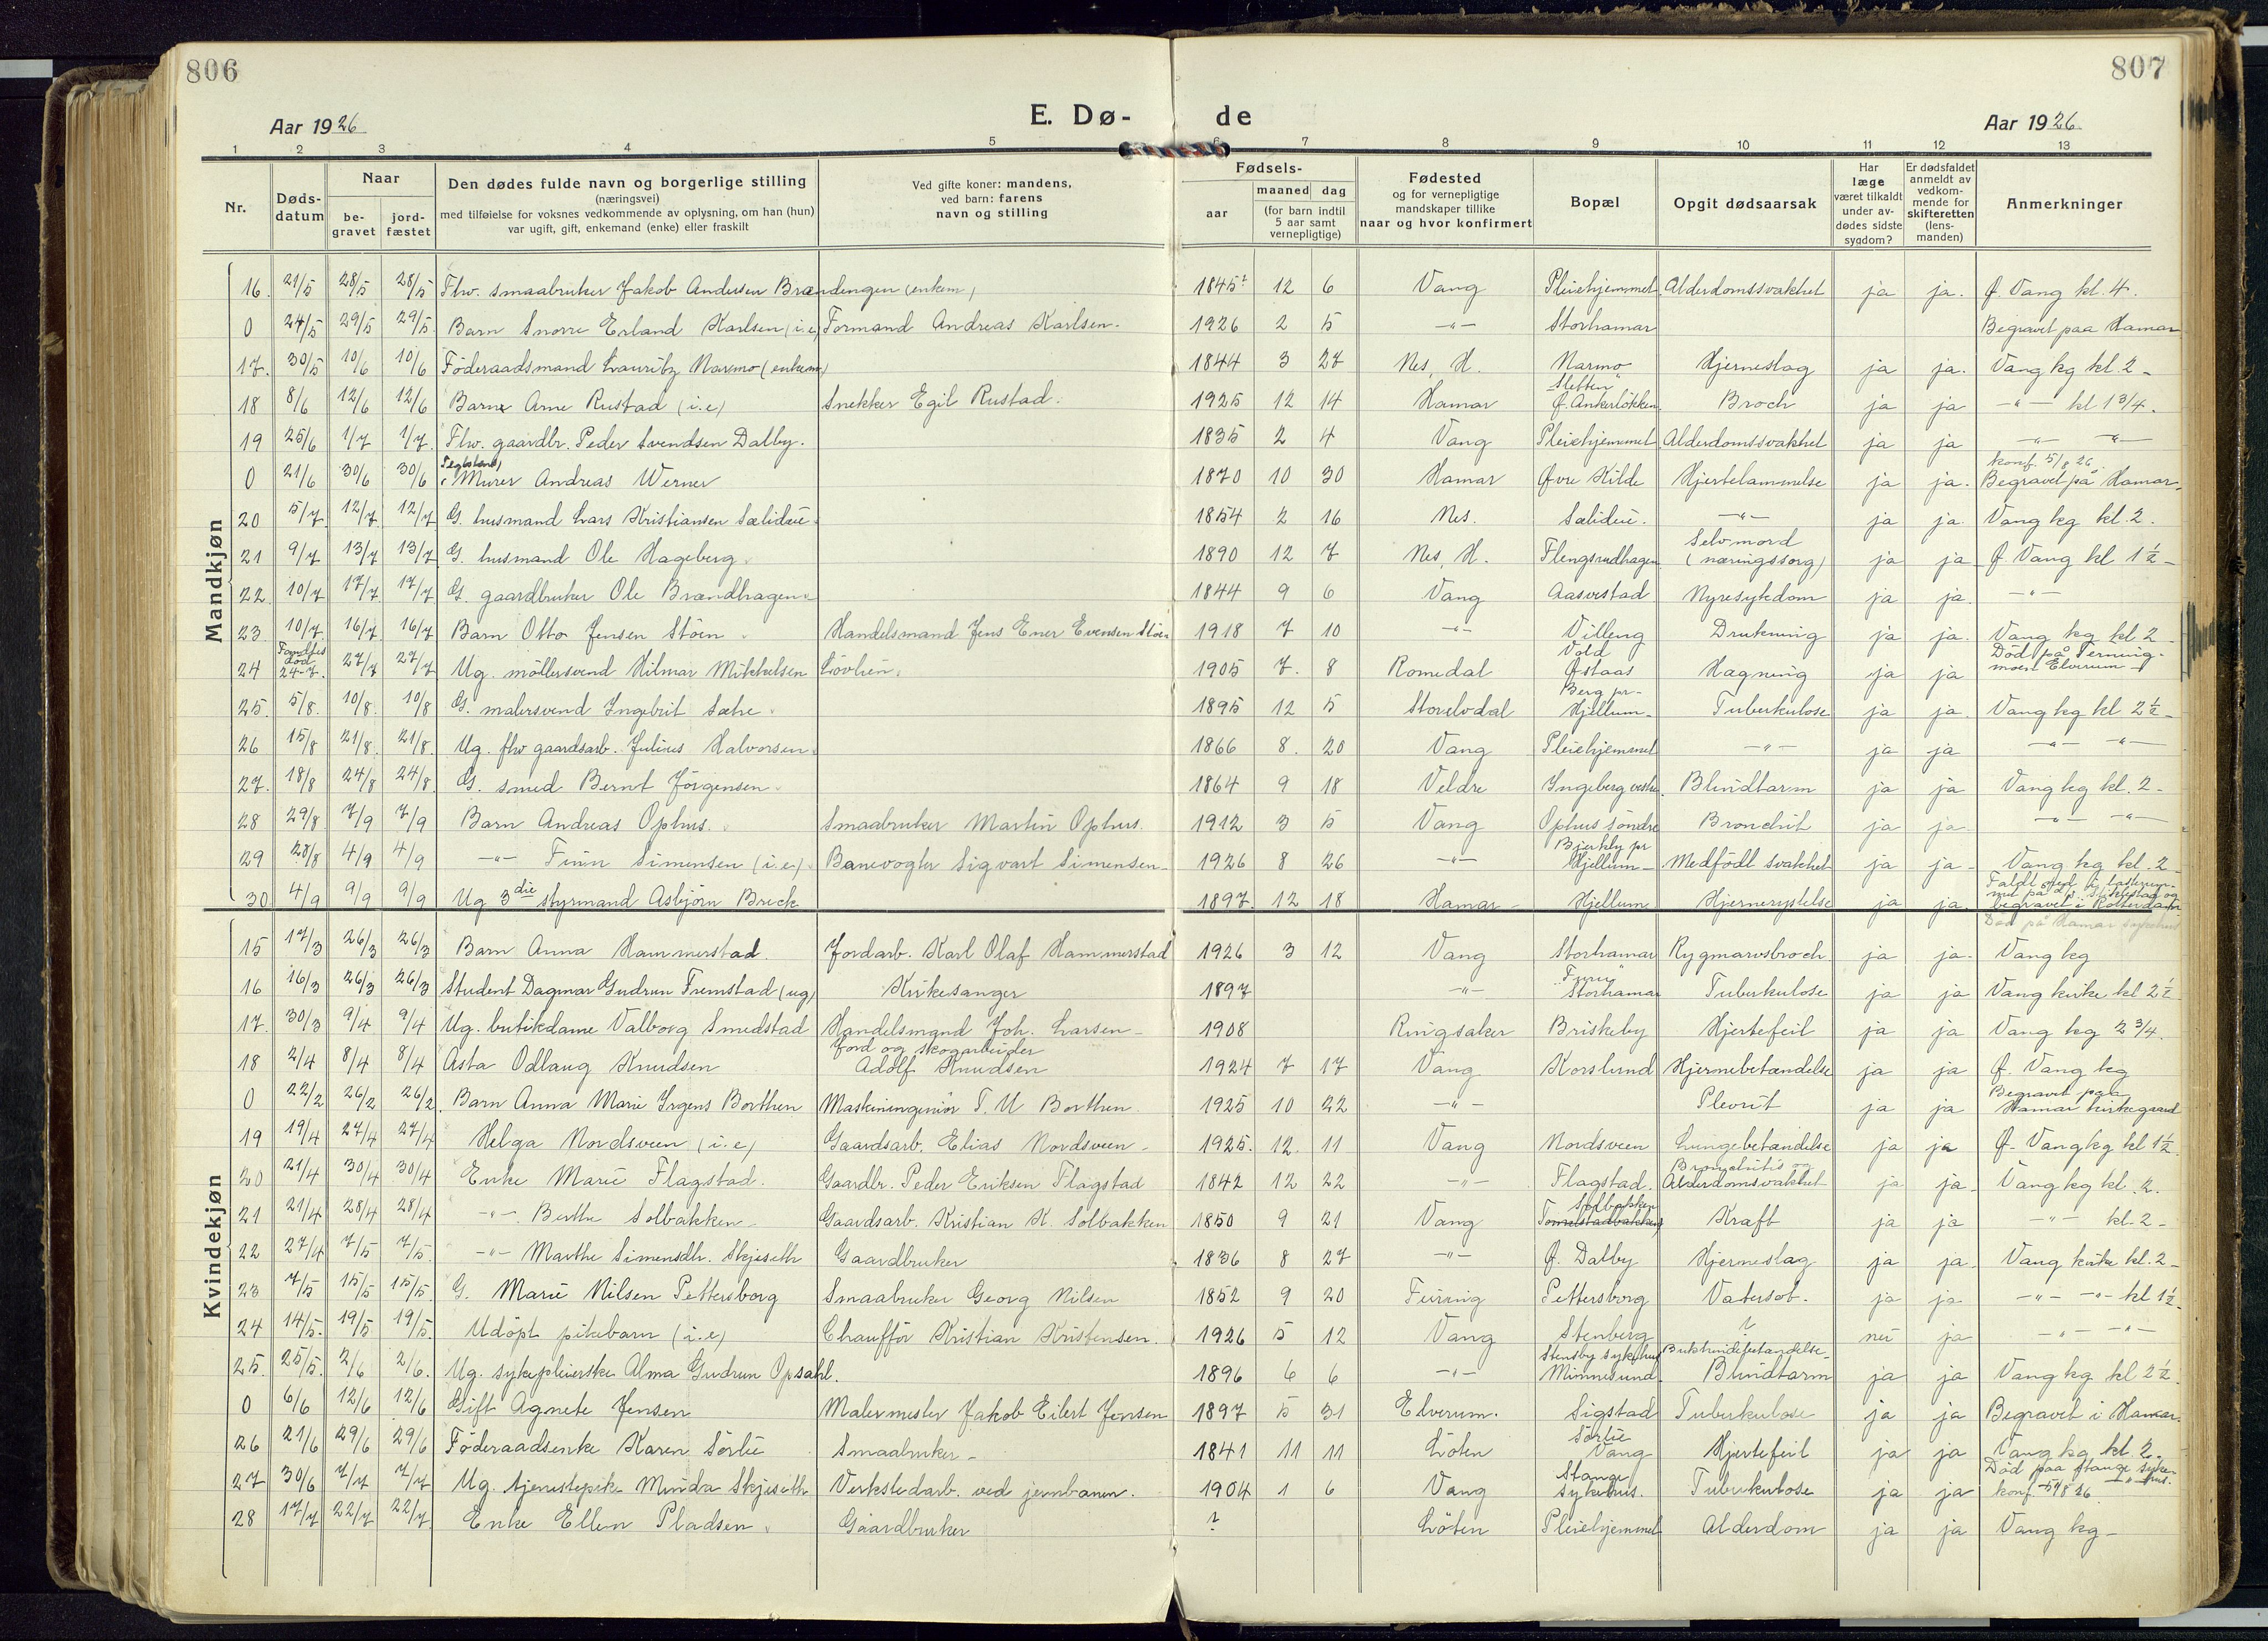 806
807
E. Dø-
de
Aar 1926
Aar 1926
1 2 3 4 5 6 7 8 9 10 11 12 13
Nr.
Døds-
datum
Naar
be-
gravet
jord-
fæstet
Den dødes fulde navn og borgerlige stilling
(næringsvei)
med tilføielse for voksnes vedkommende av oplysning, om han (hun)
var ugift, gift, enkemand (enke) eller fraskilt
Ved gifte koner: mandens,
ved barn: farens
navn og stilling
Fødsels-
aar
maaned dag
(for barn indtil
5 aar samt
vernepligtige)
Fødested
og for vernepligtige
mandskaper tillike
naar og hvor konfirmert
Bopæl
Opgit dødsaarsak
Har
læge
været tilkaldt
under av-
dødes sidste
sygdom?
Er dødsfaldet
anmeldt av
vedkom-
mende for
skifteretten
(lens-
manden)
Anmerkninger
Mandkjøn
16. 21/5 28/5 28/5 Fhv. smaabruker Jakob Andersen Brændengen (enkem) 1845? 12 6 Vang Pleiehjemmet Alderdomssvakhet ja ja. Ø. Vang kl. 4.
0 24/5 29/5 29/5. Barn Snorre Erland Karlsen (i.e) Formand Andreas Karlsen. 1926 2 5 -"- Storhamar Begravet paa Hamar
17. 30/5 10/6 10/6 Föderaadsmand Lauritz Narmo (enkem) 1844 3 27 Nes, H. Narmo Hjerneslag ja ja. Vang kg kl. 2 -
18 8/6 12/6 12/6 Barn Arne Rustad (i.e) Snekker Egil Rustad. 1925 12 14 Hamar "Sletten" Ø. Ankerlökken Broch ja ja -"- kl 1 3/4.
19 25/6 1/7 1/7. Fhv. gaardbr. Peder Svendsen Dalby. 1835 2 4 Vang Pleiehjemmet Alderdomssvakhet ja ja -"- -"-
0 21/6 30/6 30/6 Murer Andreas Werner 1870 10 30 Hamar Øvre Kilde Hjertelammelse ja ja. konf. 5/8 26. Begravet på Hamar.
20 5/7. 12/7. 12/7 G. husmand Lars Kristiansen Sælideie. 1854 2 16 Nes. Sælideie. -"- ja ja Vang kg kl. 2.
21 9/7 13/7 13/7 G. husmand Ole Hageberg. 1890 12 7 Nes, H. Flengsrudhagen Selvmord (næringssorg) ja ja Ø. Vang kl 1 1/2 -
22. 10/7 17/7. 17/7 G. gaardbruker Ole Brændhagen. 1844 9 6 Vang Aasvestad Nyresykdom ja ja. -"-
23. 10/7. 16/7 16/7 Barn Otto Jensen Stöen Handelsmand Jens Ener Evensen Stöen 1918 7 10 -"- Villeng Drukning ja ja. Vang kg kl 2 -
24 Fandtes död 24-7. 27/7 27/7. Ug. möllersvend Hilmar Mikkelsen Lövlien. 1905 7. 8 Romedal Vold Østaas Hagning ja ja Död på Terning- moen Elverum -
25. 5/8. 10/8. 10/8 G. malersvend Ingebrit Sætre. 1895 12 5 Storelvdal Berg pr- Hjellum - Tuberkulose ja ja. Vang kg kl 2 1/2 -
26 15/8 21/8. 21/8. Ug. fhv gaardsarb. Julius Halvorsen. 1866 8. 20 Vang Pleiehjemmet -"- ja ja -"- -"-
27. 18/8 24/8 24/8. G. smed Bernt Jörgensen. 1864 9 18 Veldre Ingeberg vestre Blindtarm ja ja Vang kg kl. 2 -
28 29/8 7/9 7/9 Barn Andreas Ophus. Smaabruker Martin Ophus. 1912 3 5 Vang Ophus söndre Bronchit ja ja -"- -"-
29 28/8 4/9 4/9 -"- Finn Simensen (i.e). Banevogter Sigvart Simensen - 1926 8 26 -"- Bjerkly pr Hjellum - Medfödt svakhet ja ja - Vang kg kl. 2 -
30 4/9 9/9 9/9 Ug 3die styrmand Asbjörn Breck 1897. 12 18 Hamar - Hjellum Hjernerystelse ja ja. Faldt ned i lasterum- met på begravet i Rotterdam.
Kvindekjøn
Död på Hamar sykehus
15 17/3 26/3 26/3 Barn Anna Hammerstad. Jordarb. Karl Olaf Hammerstad 1926 3 12 Vang Storhamar Rygmarvsbroch ja ja. Vang kg
16 16/3 26/3 26/3 Student Dagmar Gudrun Fremstad (ug) Kirkesanger 1897 -"- "Furu" Storhamar Tuberkulose ja ja Vang kirke kl 2 1/2.
17. 30/3 9/4 9/4 Ug. butikdame Valborg Smedstad Handelsmand Joh. Larsen - 1908 Ringsaker Briskeby Hjertefeil ja ja Vang kg 2 3/4.
18 2/4 8/4 8/4 Asta Odlaug Knudsen Jord og skogarbeider Adolf Knudsen 1924 7 17 Vang Korslund Hjernebetændelse ja ja Ø. Vang kg
0 22/2 26/2 26/2. Barn Anna Marie Irgens Borthen Maskiningeniör T. U Borthen. 1925 10 22 -"- Plevrit ja ja Begravet paa Hamar kirkegaard
19 19/4 27/4 27/4 Helga Nordsveen (i.e) Gaardsarb. Elias Nordsveen - 1925. 12. 11 Vang Nordsveen Lungebetændelse ja ja Ø. Vang kg kl 1 1/2.
20 21/4 30/4 30/4 Enke Marie Flagstad. Gaardbr. Peder Eriksen Flagstad 1842 12 22 -"- Flagstad. Bronchitis og Alderdomsvakhet ja ja. Vang kg kl. 2.
21 21/4 28/4 28/4 -"- Berthe Solbakken - Gaardsarb. Kristian K. Solbakken 1850 9 21 Vang Solbakken Tomelstadbakken Kræft ja ja -"- kl. 2 -
22 27/4 7/5 7/5. -"- Marthe Simensdtr. Skjeseth Gaardbruker 1836 8 27 -"- Ø. Dalby Hjerneslag ja ja. Vang kirke kl. 2 -
23 7/5 15/5 15/5. G. Marie Nilsen Pettersborg Smaabruker Georg Nilsen 1852 9 20 Furnes Pettersborg Vatersot. ja ja -"- -"- kl 1 1/2.
24 14/5. 19/5 19/5. Udöpt pikebarn (i.e) Chaufför Kristian Kristensen. 1926 5 12 Vang Stenberg ? nei ja -"- -"-
25. 25/5. 2/6 2/6. Ug. sykepleierske Alma Gudrun Opsahl. 1896 6 6 -"- Stensby sykehus Minnesund. Bukhindebetændelse - Blindtarm ja ja Vang kg kl 2 1/2.
0 6/6 12/6 12/6 Gift Agnete Jensen Malermester Jakob Eilert Jensen 1897 5 31 Elverum. Sigstad Tuberkulose ja ja Begravet i Hamar.
26 21/6 29/6 29/6 Föderaadsenke Karen Sörlie Smaabruker - 1841 11 11 Löten Sörlie Vang Hjertefeil ja ja Vang kg kl. 2.
27 30/6 7/7 7/7 Ug. tjenestepike Minda Skjeseth Verkstedarb. ved jernbanen. 1904 1 6 Vang Stange sykehus. Tuberkulose ja ja Död paa Stange syke- hus. konf. 5/8 26.
28 17/7 22/7 22/7. Enke Ellen Pladsen. Gaardbruker ? Löten Pleiehjemmet Alderdom ja ja Vang kg -